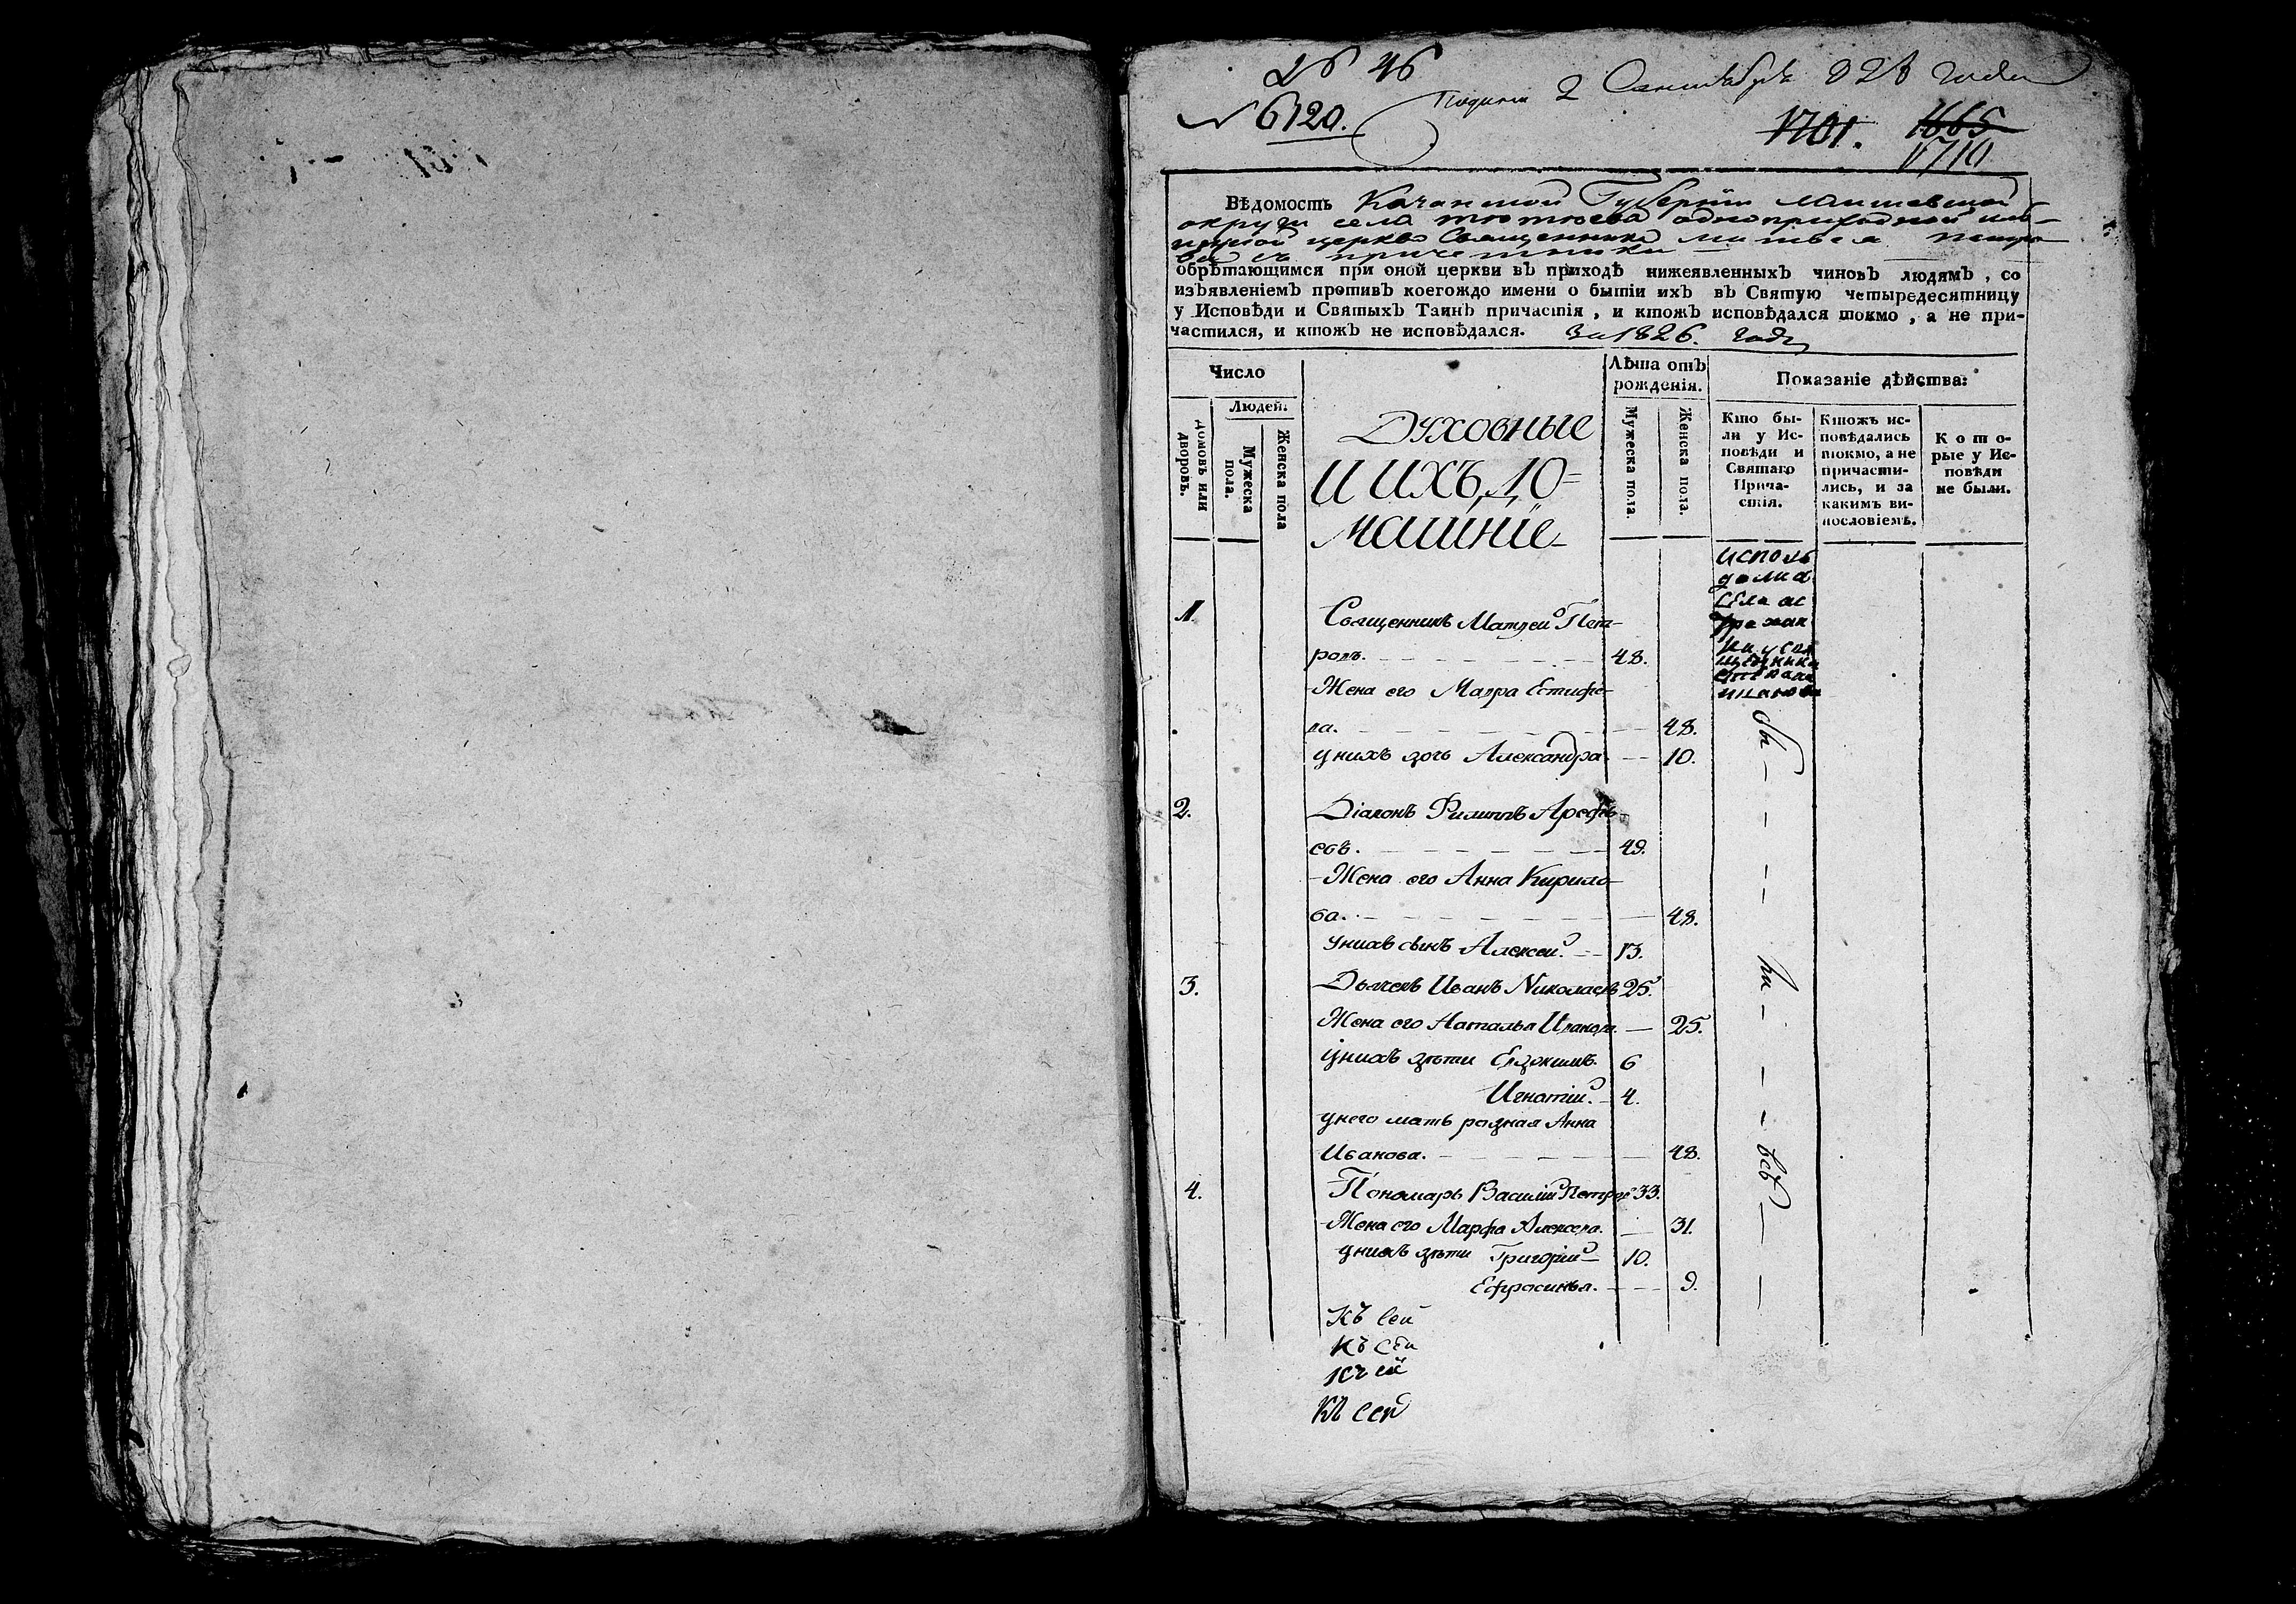 № 46
№ 6120.
Подана 2 Сентября 826 года
1701. 1665
1710
Вѣдомость Казанской Губернiи Лаишевской
округи села тютюсева одноприходной
церкви Священника Матвея Петро-
ва съ причетники
обрѣтающимся при оной церкви въ приходѣ нижеявленныхъ чиновъ людямъ, со
изъявленiемъ противъ коегождо имени о бытiи ихъ въ Святую четыредесятницу
у Исповѣди и Святыхъ Таинъ причастiя, и ктожъ исповѣдался токмо, а не при-
частился, и ктожъ не исповѣдался. За 1826. годъ
Число
Людей.
Домовъ или дворовъ.
Мужеска пола.
Женска пола
Духовные
и ихъ до=
машнiе
Лѣта отъ
рожденiя.
Мужеска пола.
Женска пола.
Показанiе дѣйства:
Кто бы-
ли у Ис-
повѣди и
Святаго
Прича-
стiя.
Ктожъ ис-
повѣдались
токмо, а не
причасти-
лись, и за
какимъ ви-
нословiемъ.
Кото-
рые у Ис-
повѣди
не были.
села
1. Священникъ Матвей Пет-
ровъ. 48.
Жена его Мавра Естифе-
ва. 48.
у нихъ дочь Александра 10.
2. Дiаконъ Филиппъ Арефь-
евъ. 49.
Жена его Анна Кирило-
ва. 48.
у нихъ сынъ Алексей. 13.
3. Дьячекъ Иванъ Николаевъ 25.
Жена его Наталья Иванова. 25.
у нихъ дѣти Евдокимъ. 6
Игнатiй. 4.
у него мать родная Анна
Иванова. 48.
4. Пономарь Василiй Петровъ 33.
Жена его Марфа Алексеева. 31.
у нихъ дѣти Григорiй 10.
Ефросинья. 9.
бы — ли — всѣ
Къ сей
Къ сей
Къ сей
Къ сей